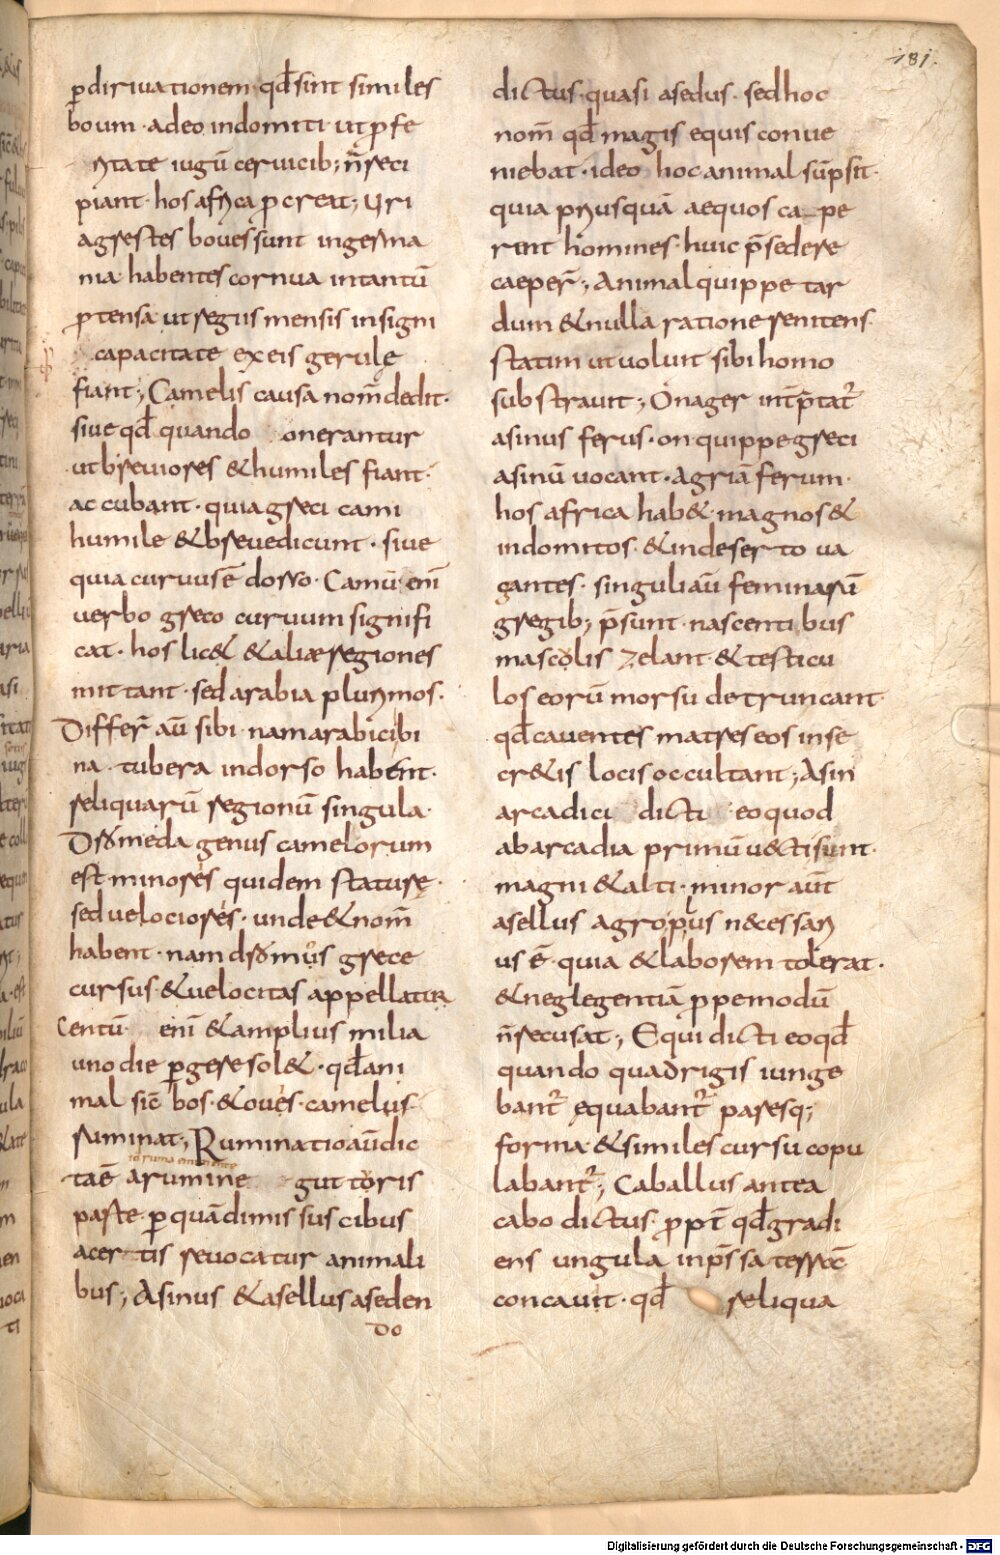 181.
p̱dirivationem· qđ sint similes
boum· adeo indomiti ut p̱ fe
ritate iugū cervicib; ñ reci
piant· hos africa ꝓcreat; Uri
agrestes boves sunt in germa
nia habentes cornua intantū
ꝓtensa ut regiis mensis insigni
capacitate ex eis gerule
fiant; Camelis causa nom̄ dedit·
sive qđ quando onerantur
ut breviores & humiles fiant·
accubant· quia greci cami
humile & breve dicunt· sive
quia curvus ē dorso· Camu· enī
verbo greco curvum signifi
cat· hos lic& & aliae regiones
mittant· sed arabia plurimos·
Differ̄ aū sibi· nam arabici bi
na tubera in dorso habent·
reliquarū regionū singula·
Dromeda genus camelorum
est minores quidem stature·
sed velociores· unde & nom̄
habent· nam dromos grece
cursus & velocitas appellatur
Centū enī & amplius milia
uno die p̱gere sol&· qđ ani
mal sic̄ bos· & oves· camelus·
ruminat; Ruminatio aū dic
ta ē a rumine gutturis
parte· p̱ quā dimissus cibus
a certis revocatur animali
bus; Asinus & asellus aseden
do
dictus· quasi asedus· sed hoc
nom̄ qđ magis equis conve
niebat· ideo hoc animal sūpsit·
quia priusquā aequos cape
rent homines· huic p̄sedere
caeper̄; Animal quippe tar
dum & nulla ratione renitens·
statim ut voluit sibi homo
substravit; Onager int̄p̄tat̄
asinus ferus· on quippe greci
asinū vocant· agriā ferum·
hos africa hab& magnos &
indomitos· & in deserto va
gantes· singuli aū feminarū
gregib; p̄sunt· nascentibus
mascolis zelant & testicu
los eorū morsu detruncant·
qđ caventes matres eos in se
cr&is locis occultant; Asin
arcadici dicti eo quod
ab arcadia primū vecti sunt·
magni & alti· minor aūt
asellus agro plus necessari
us ē· quia & laborem tolerat·
& neglegentiā ꝓpemodū
ñ recusat; Equi dicti eo qđ
quando quadrigis iunge
bant̄ equabant̄ paresq;
forma & similes cursu copu
labant̄; Caballus antea
cabo dictus· ꝓpt̄ qđ gradi
ens ungula inp̄ssa terrā
concavit· qđ reliqua
Digitalisierung gefördert durch die Deutsche Forschungsgemeinschaft - DFG